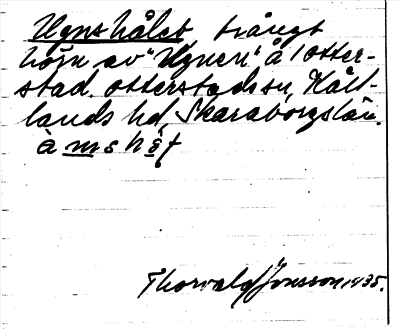 Ugnshålet, trångt
hörn av "Ugnen" å Otter-
stad. Otterstads sn, Kål-
lands hd, Skaraborgs län.
Thorvald Jonsson 1935.